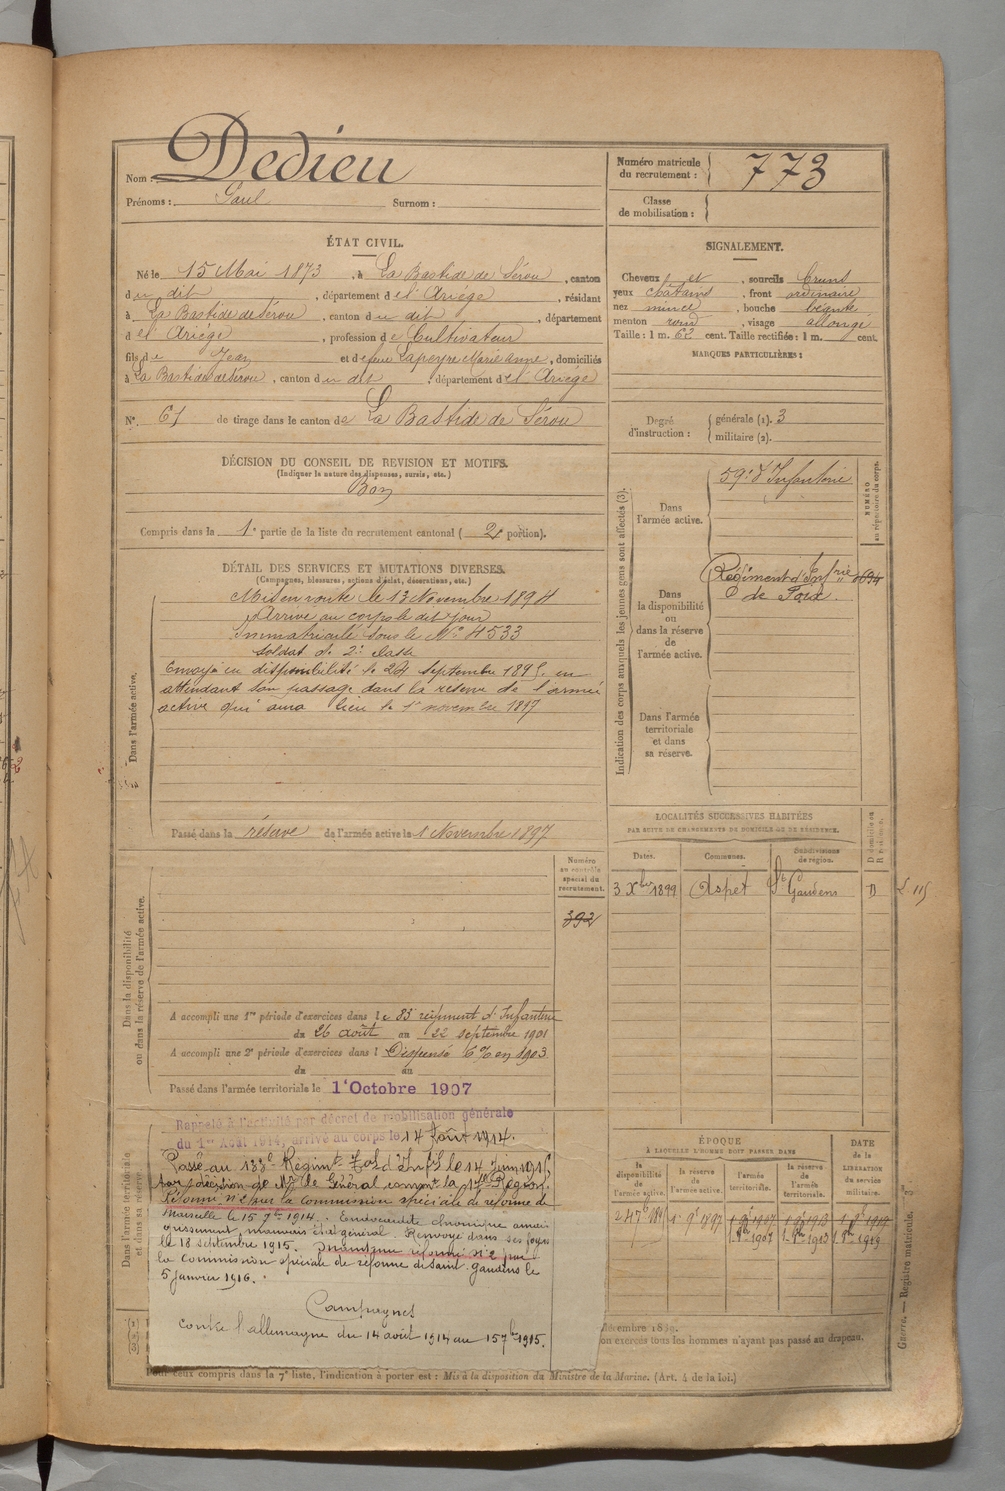 Nom : Dedieu
Prénoms : Paul Surnom :
Numéro matricule du recrutement : 773
Classe de mobilisation :
ÉTAT CIVIL.
Né le 15 Mai 1873, à La Bastide de Sérou, canton
du dit, département de l'Ariège, résidant
à La Bastide de Sérou, canton du dit, département
de l'Ariège, profession de Cultivateur
fils de Jean et de feue Lapeyre Marie Anne, domiciliés
à La Bastide de Sérou, canton du dit, département de l'Ariège
N°. 61 de tirage dans le canton de La Bastide de Sérou
SIGNALEMENT.
Cheveux et, sourcils bruns
yeux châtains, front ordinaire
nez mince, bouche
menton rond, visage allongé
Taille : 1 m. 62 cent. Taille rectifiée : 1 m. cent.
MARQUES PARTICULIÈRES :
Degré d'instruction : générale (1). 3
militaire (2).
DÉCISION DU CONSEIL DE REVISION ET MOTIFS.
(Indiquer la nature des dispenses, sursis, etc.)
Bon
Compris dans la 1e partie de la liste du recrutement cantonal (2e portion).
DÉTAIL DES SERVICES ET MUTATIONS DIVERSES.
(Campagnes, blessures, actions d'éclat, décorations, etc.)
Dans l'armée active.
Mis en route le 13 Novembre 1894
Arrivé au corps le dit jour
Immatriculé sous le N° 4533
soldat de 2e classe
Envoyé en disponibilité le 24 septembre 1895 en
attendant son passage dans la réserve de l'armée
active qui aura lieu le 1er novembre 1897
Passé dans la réserve de l'armée active le 1 Novembre 1897
Indication des corps auxquels les jeunes gens sont affectés (3).
Dans l'armée active.
59e d'Infanterie
NUMÉRO au répertoire du corps.
Dans la disponibilité ou dans la réserve de l'armée active.
Régiment d'Infrie
de Foix
Dans l'armée territoriale et dans sa réserve.
LOCALITÉS SUCCESSIVES HABITÉES
PAR SUITE DE CHANGEMENTS DE DOMICILE OU DE RÉSIDENCE.
Dates. Communes. Subdivisions de région. D domicile ou R résidence.
3 Xbre 1899 Aspet St Gaudens D
Dans la disponibilité ou dans la réserve de l'armée active.
Numéro au contrôle spécial du recrutement.
392
A accompli une 1re période d'exercices dans le 83e régiment d'Infanterie
du 26 août au 22 septembre 1901
A accompli une 2e période d'exercices dans l Dispensé 6% en 1903
du au
Passé dans l'armée territoriale le 1er Octobre 1907
Dans l'armée territoriale et dans sa réserve.
Rappelé à l'activité par décret de mobilisation générale
du 1er Août 1914, arrivé au corps le 14 Août 1914.
Passé au 133e Régimt Tal d'Infie le 14 Juin 1915
par décision de Mr le Général commt la Région.
Réformé n°2 par la commission spéciale de réforme de
Marseille le 15 7bre 1914.
amaigrissement, mauvais état général. Renvoyé dans ses foyers
le 18 septembre 1915. Maintenu réformé n°2 par
la commission spéciale de réforme de Saint-Gaudens le
5 janvier 1916.
Campagnes
contre l'allemagne du 14 août 1914 au 15 7bre 1915.
ÉPOQUE
À LAQUELLE L'HOMME DOIT PASSER DANS
la disponibilité de l'armée active. la réserve de l'armée active. l'armée territoriale. la réserve de l'armée territoriale.
DATE de la LIBÉRATION du service militaire.
1 9bre 1897
1 8bre 1907 1 8bre 1913 1 8bre 1919
Guerre. — Registre matricule. 3
on exercés tous les hommes n'ayant pas passé au drapeau.
Pour ceux compris dans la 7e liste, l'indication à porter est : Mis à la disposition du Ministre de la Marine. (Art. 4 de la loi.)